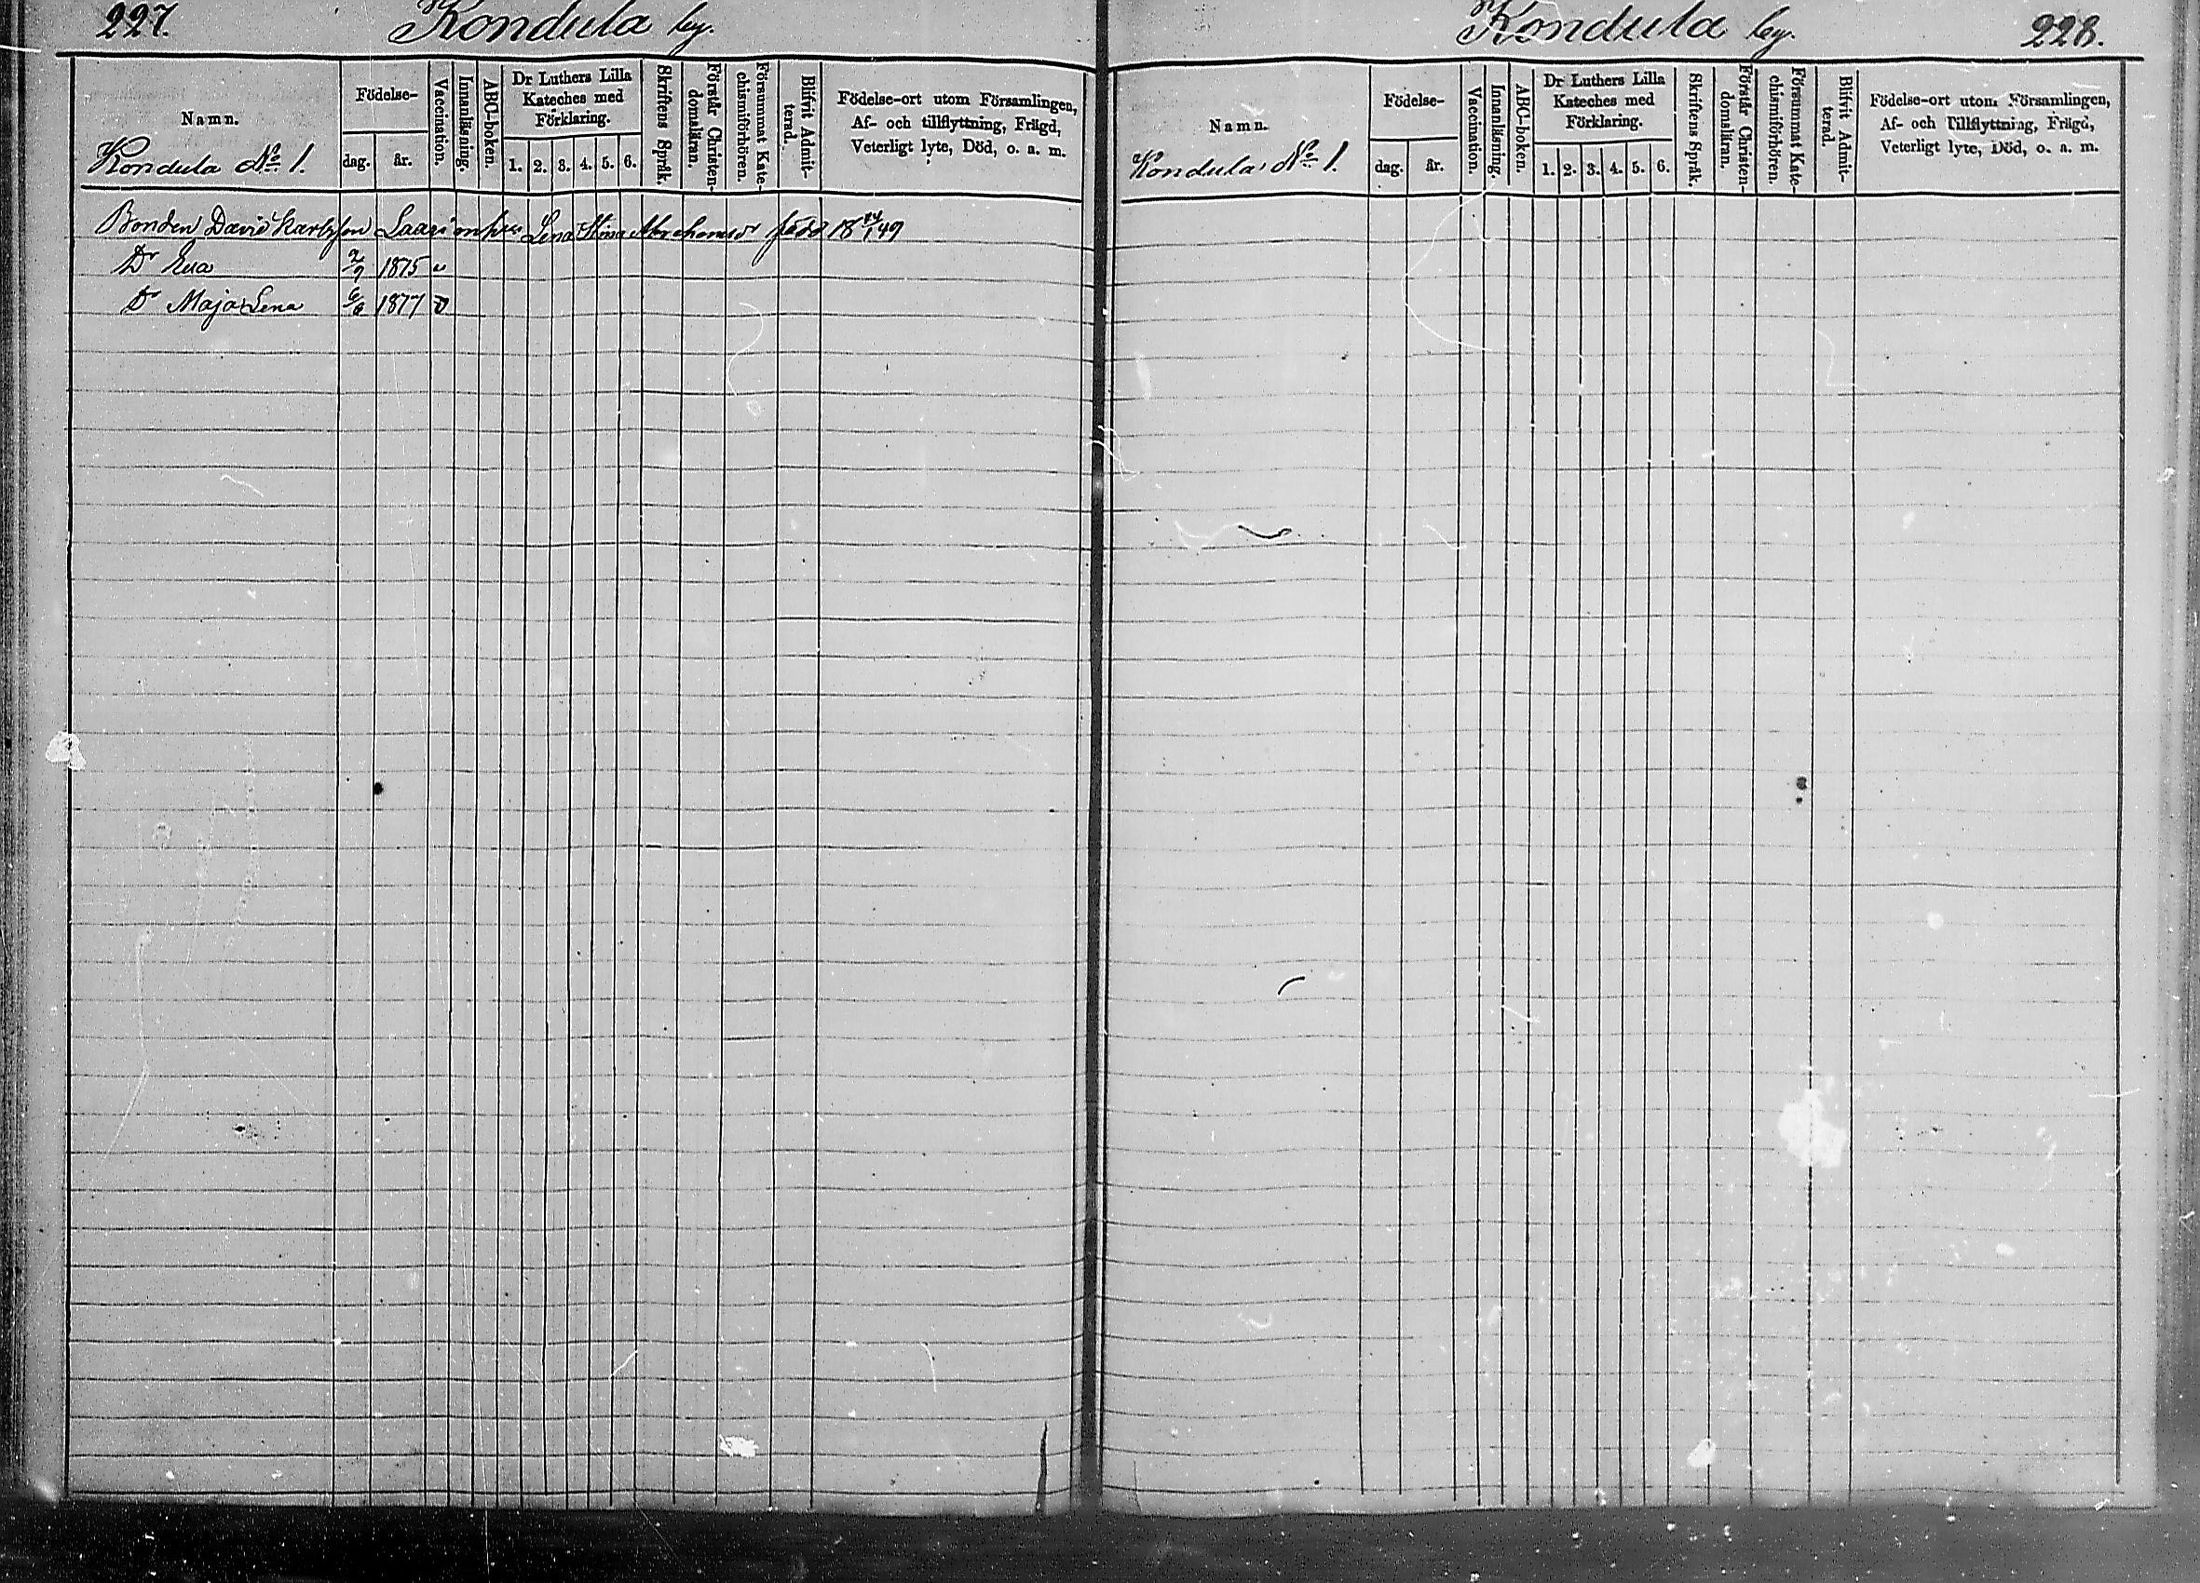 227. Kondula by.
Namn.
Kondula No 1.
Födelse-
dag. år.
Vaccination.
Innanläsning.
ABC-boken.
Dr Luthers Lilla
Kateches med
Förklaring.
1. 2. 3. 4. 5. 6.
Skriftens Språk.
Förstår Christen-
domsläran.
Försummat Kate-
chismiförhören.
Blifvit Admit-
terad.
Födelse-ort utom Församlingen,
Af- och tillflyttning, Frägd,
Veterligt lyte, Död, o. a. m.
Bonden David Karlsson Lena Stina född 18 49
Dr Eva 2/9 1875 v
Dr Maja Lena 1877 v
Kondula by. 228.
Namn.
Kondula No 1.
Födelse-
dag. år.
Vaccination.
Innanläsning.
ABC-boken.
Dr Luthers Lilla
Kateches med
Förklaring.
1. 2. 3. 4. 5. 6.
Skriftens Språk.
Förstår Christen-
domsläran.
Försummat Kate-
chismiförhören.
Blifvit Admit-
terad.
Födelse-ort utom Församlingen,
Af- och Tillflyttning, Frägd,
Veterligt lyte, Död, o. a. m.